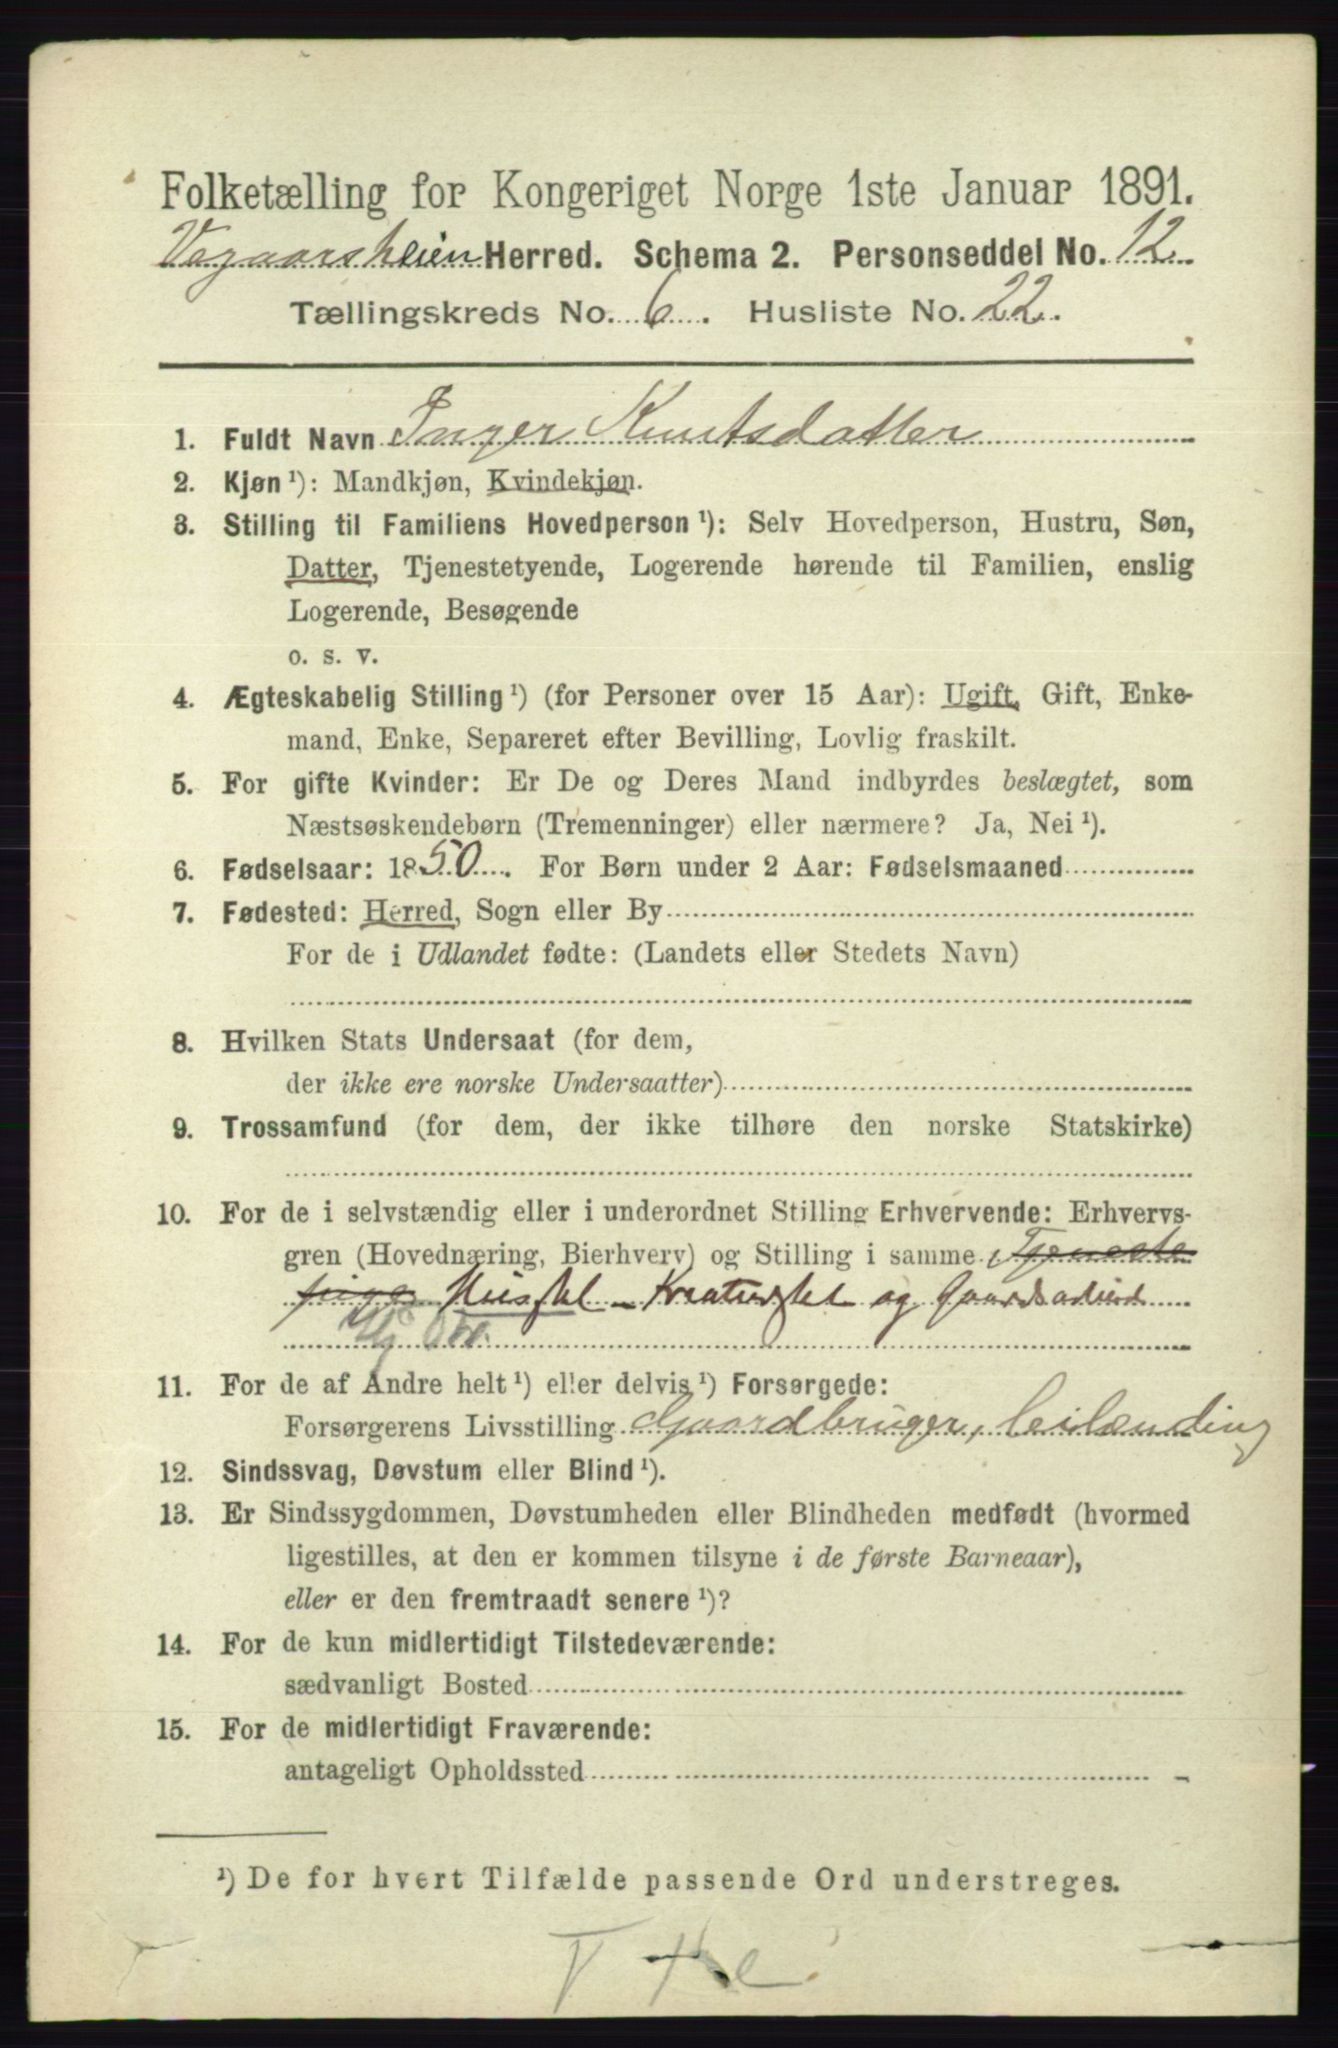 Folketælling for Kongeriget Norge 1ste Januar 1891.
Vegaarsheien Herred. Schema 2. Personseddel No. 12.
Tællingskreds No. 6. Husliste No. 22.
1. Fuldt Navn Inger Knutsdatter
2. Kjøn ¹): Mandkjøn, Kvindekjøn.
3. Stilling til Familiens Hovedperson ¹): Selv Hovedperson, Hustru, Søn,
Datter, Tjenestetyende, Logerende hørende til Familien, enslig
Logerende, Besøgende
o. s. v.
4. Ægteskabelig Stilling ¹) (for Personer over 15 Aar): Ugift, Gift, Enke-
mand, Enke, Separeret efter Bevilling, Lovlig fraskilt.
5. For gifte Kvinder: Er De og Deres Mand indbyrdes beslægtet, som
Næstsøskendebørn (Tremenninger) eller nærmere? Ja, Nei ¹).
6. Fødselsaar: 1850. For Børn under 2 Aar: Fødselsmaaned
7. Fødested: Herred, Sogn eller By
For de i Udlandet fødte: (Landets eller Stedets Navn)
8. Hvilken Stats Undersaat (for dem,
der ikke ere norske Undersaatter)
9. Trossamfund (for dem, der ikke tilhøre den norske Statskirke)
10. For de i selvstændig eller i underordnet Stilling Erhvervende: Erhvervs-
gren (Hovednæring, Bierhverv) og Stilling i samme Tjeneste
pige Husstel - Kreaturstel og Gaardsarbeid
11. For de af Andre helt ¹) eller delvis ¹) Forsørgede:
Forsørgerens Livsstilling Gaardbruger, leilænding
12. Sindssvag, Døvstum eller Blind ¹).
13. Er Sindssygdommen, Døvstumheden eller Blindheden medfødt (hvormed
ligestilles, at den er kommen tilsyne i de første Barneaar),
eller er den fremtraadt senere ¹)?
14. For de kun midlertidigt Tilstedeværende:
sædvanligt Bosted
15. For de midlertidigt Fraværende:
antageligt Opholdssted
¹) De for hvert Tilfælde passende Ord understreges.